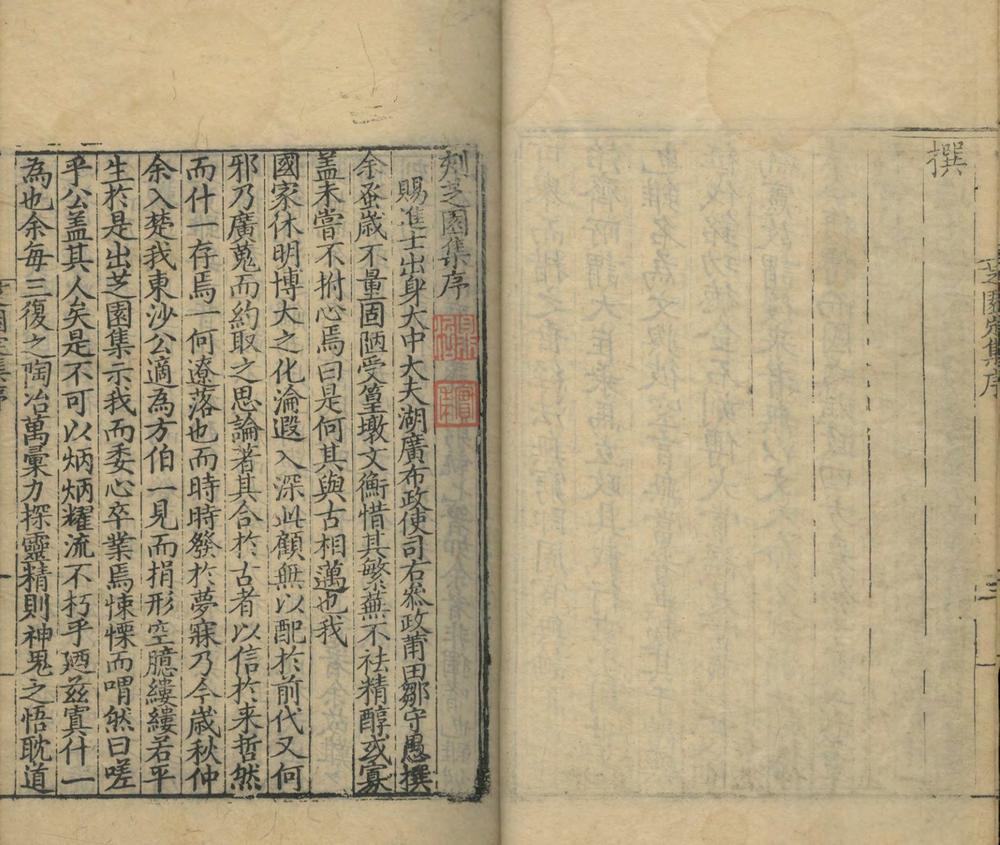 撰
芝園定集序
三
刻芝園集序
賜進士出身大中大夫湖廣布政使司右叅政莆田鄒守愚撰
余蚤歲不量固陋受篁墩文衡惜其繁蕪不祛精醇或寡
蓋未嘗不拊心焉曰是何其與古相邁也我
國家休明博大之化淪遐入深此顧無以配於前代又何
邪乃廣蒐而約取之思論著其合於古者以信於来哲然
而什一存焉一何遼落也而時時發於夢寐乃今歲秋仲
余入楚我東沙公適為方伯一見而捐形空臆縷縷若平
生於是出芝園集示我而委心卒業焉悚慄而喟然曰嗟
乎公蓋其人矣是不可以炳炳耀流不朽乎廼茲寘什一
為也余每三復之陶冶萬彙力探靈精則神鬼之悟耽道